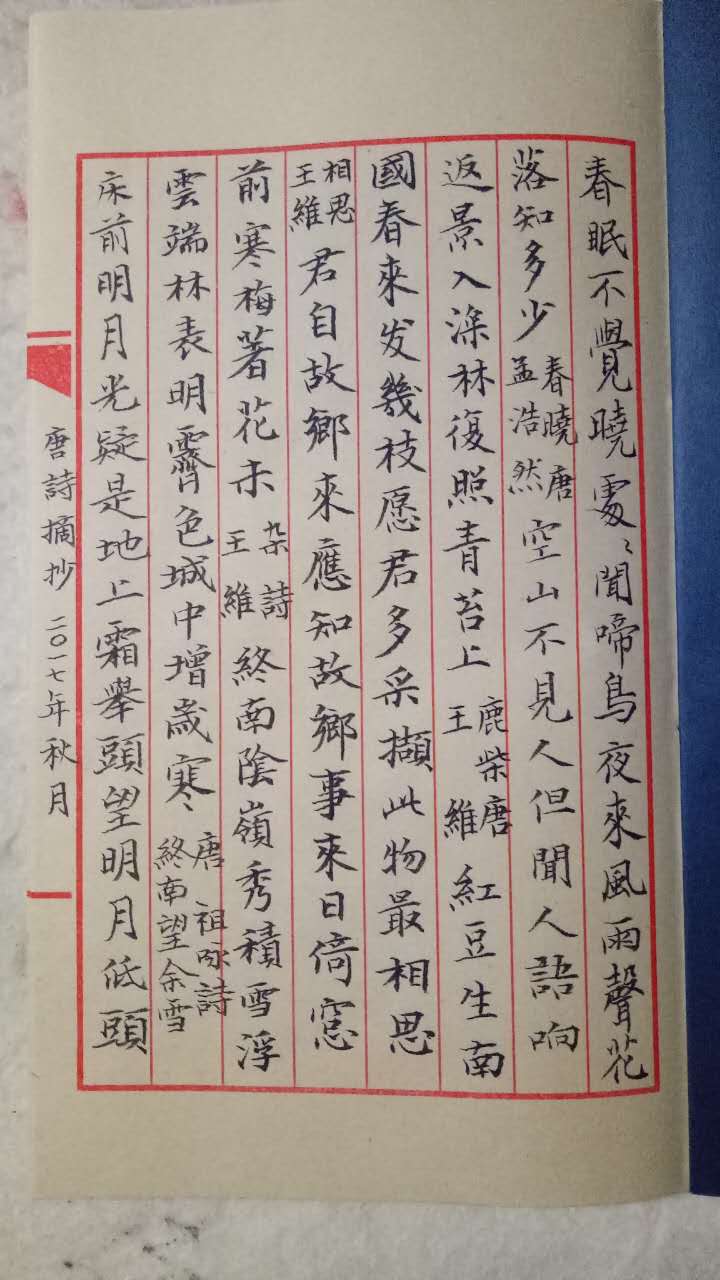 春眠不覺曉處〻聞啼鳥夜來風雨聲花
落知多少春曉唐孟浩然空山不見人但聞人語响
返景入深林復照青苔上鹿柴唐王維紅豆生南
國春來发幾枝愿君多采擷此物最相思
相思王維君自故鄉來應知故鄉事來日倚窓
前寒梅著花未杂詩王維終南陰嶺秀積雪浮
雲端林表明霽色城中增歲寒唐祖咏詩終南望余雪
床前明月光疑是地上霜舉頭望明月低頭
唐詩摘抄二〇一七年秋月